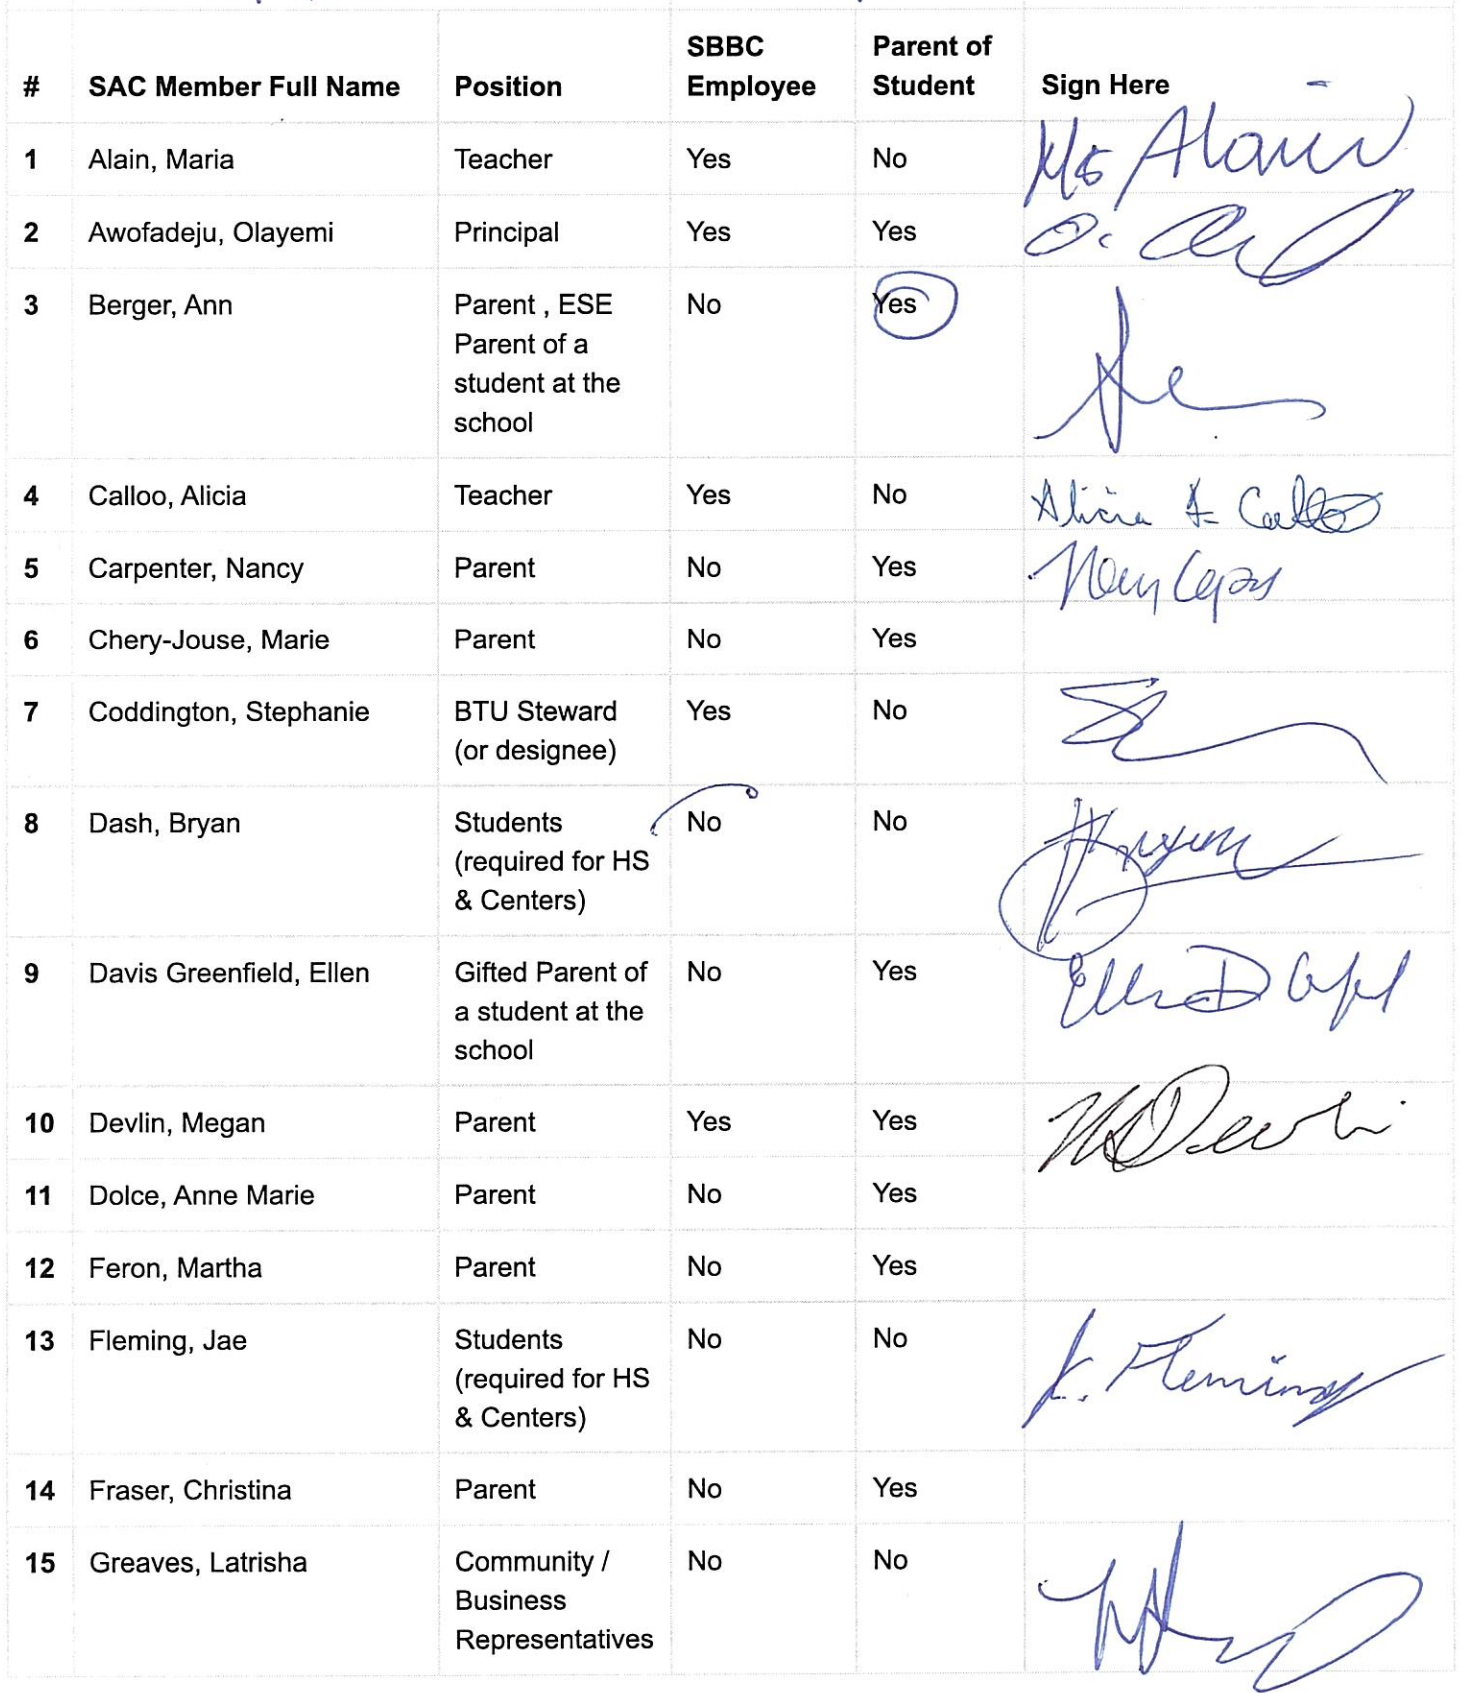 # SAC Member Full Name Position SBBC Employee Parent of Student Sign Here
1 Alain, Maria Teacher Yes No Ms Alain
2 Awofadeju, Olayemi Principal Yes Yes O.
3 Berger, Ann Parent , ESE No Yes
Parent of a
student at the
school
4 Calloo, Alicia Teacher Yes No Alicia A Calloo
5 Carpenter, Nancy Parent No Yes
6 Chery-Jouse, Marie Parent No Yes
7 Coddington, Stephanie BTU Steward Yes No
(or designee)
8 Dash, Bryan Students No No
(required for HS
& Centers)
9 Davis Greenfield, Ellen Gifted Parent of No Yes Ellen D
a student at the
school
10 Devlin, Megan Parent Yes Yes M Devlin
11 Dolce, Anne Marie Parent No Yes
12 Feron, Martha Parent No Yes
13 Fleming, Jae Students No No J. Fleming
(required for HS
& Centers)
14 Fraser, Christina Parent No Yes
15 Greaves, Latrisha Community / No No
Business
Representatives